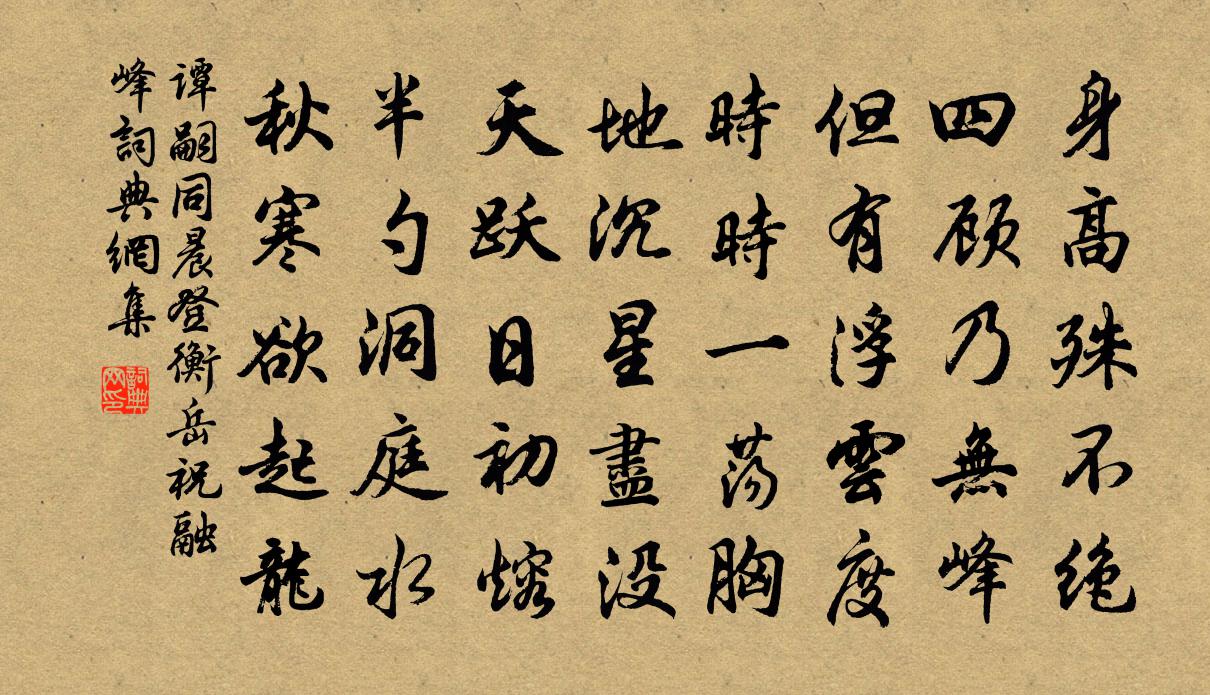 身高殊不绝
四顾乃無峰
但有浮雲度
時時一荡胸
地沉星盡没
天跃日初熔
半勺洞庭水
秋寒欲起龍
谭嗣同晨登衡岳祝融
峰詞典網集
詞典
网印